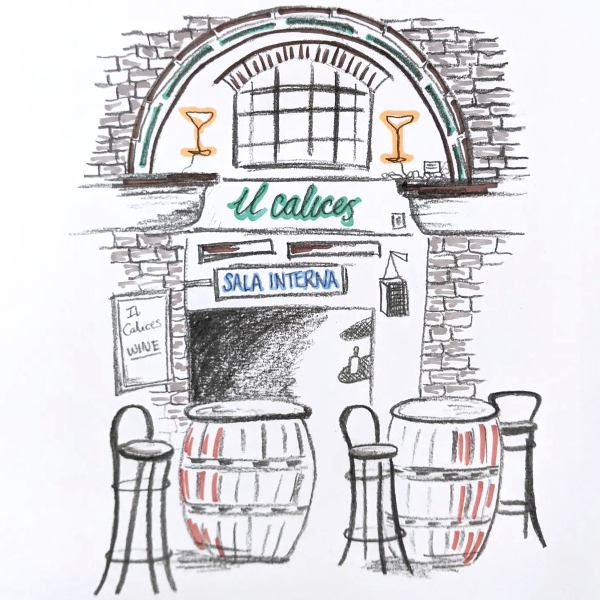 Il calices
SALA INTERNA
Il
Calices
WINE